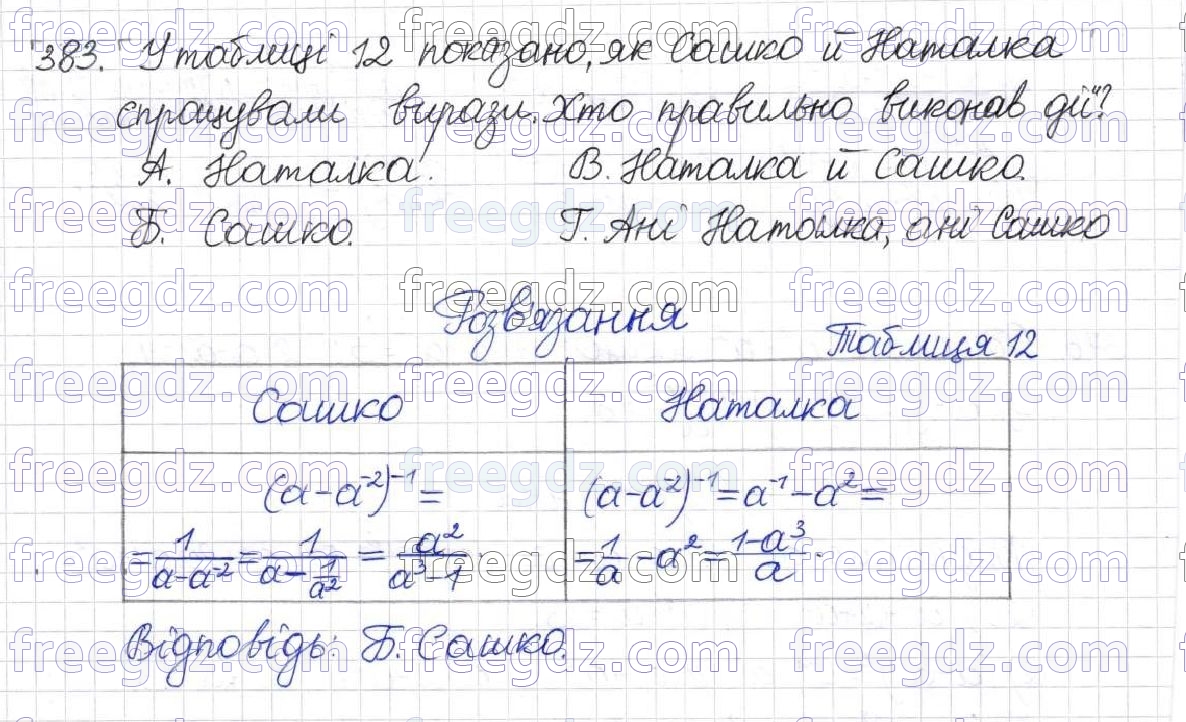 383. У таблиці 12 показано, як Сашко й Наталка
спрощували вирази. Хто правильно виконав дії?
А. Наталка.
В. Наталка й Сашко.
Б. Сашко.
Г. Ані Наталка, ані Сашко
Розв'язання
Таблиця 12
Сашко
Наталка
(a-a⁻²)⁻¹=
=1/(a-a⁻²)=1/(a-1/a²)=a²/(a³-1).
(a-a⁻²)⁻¹=a⁻¹-a²=
=1/a-a²=(1-a³)/a.
Відповідь: Б. Сашко.
freegdz.com